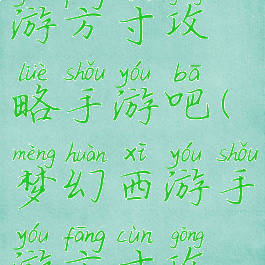 游方寸攻
lüè shǒu yóu bā
略手游吧(
mèng huàn xī yóu shǒu
梦幻西游手
yóu fāng cùn gōng
游方寸攻